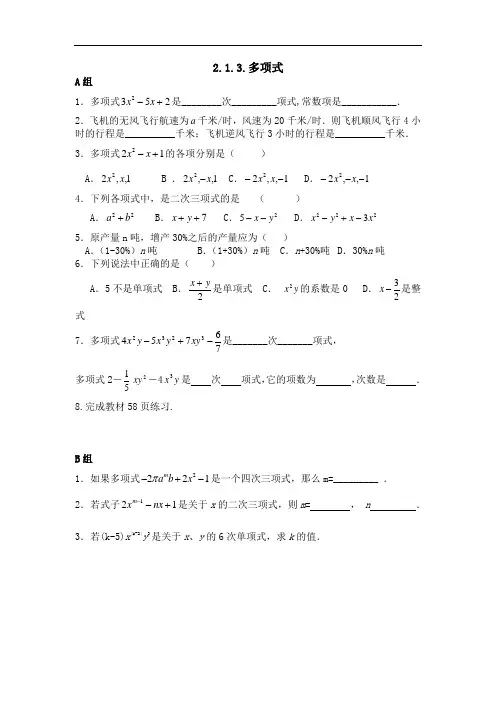 2.1.3.多项式
A组
1．多项式3x²－5x＋2是________次_________项式,常数项是___________．
2．飞机的无风飞行航速为a千米/时，风速为20千米/时．则飞机顺风飞行4小
时的行程是__________千米；飞机逆风飞行3小时的行程是__________千米．
3．多项式2x²－x＋1的各项分别是（ ）
A．2x²,x,1 B．2x²,－x,1 C．－2x²,x,－1 D．－2x²,－x,－1
4．下列各项式中，是二次三项式的是 （ ）
A．a²＋b² B．x＋y＋7 C．5－x－y² D．x²－y²＋x－3x²
5．原产量n吨，增产30%之后的产量应为（ ）
A．（1-30%）n吨 B．（1+30%）n吨 C．n+30%吨 D．30%n吨
6．下列说法中正确的是（ ）
A．5不是单项式 B．(x＋y)/2是单项式 C． x²y的系数是0 D．x－3/2是整
式
7．多项式4x²y－5x³y²＋7xy³－6/7是_______次_______项式，
多项式2－1/5 xy²－4x³y是 次 项式，它的项数为 ，次数是 ．
8.完成教材58页练习.
B组
1．如果多项式－2πaᵐb＋2x²－1是一个四次三项式，那么m=_________ ．
2．若式子2xᵐ⁻¹－nx＋1是关于x的二次三项式，则m= ， n ．
3．若(k-5)x^|k-2|y³是关于x、y的6次单项式，求k的值．